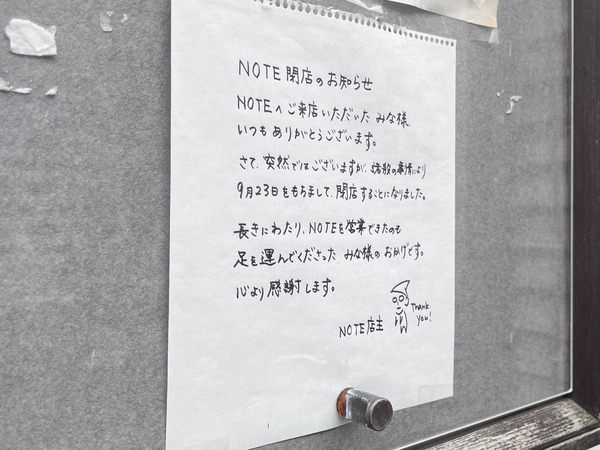 NOTE 閉店のお知らせ
NOTEへご来店いただいたみな様、
いつもありがとうございます。
さて、突然ではございますが、諸般の事情により
9月23日をもちまして、閉店することになりました。
長きにわたり、NOTEを営業できたのも
足を運んでくださった みな様のおかげです。
心より感謝します。
NOTE店主
Thank
you!